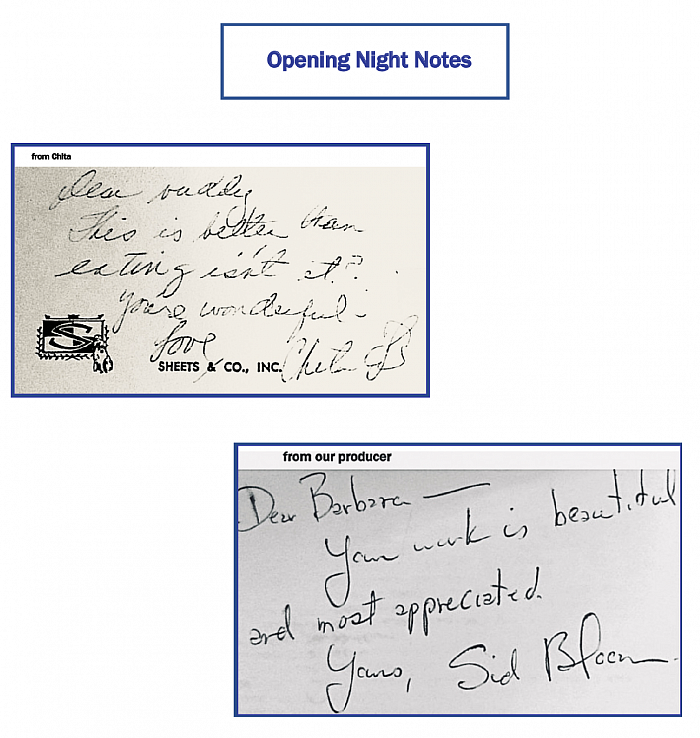 Opening Night Notes
from Chita
Dear buddy
This is better than
eating isn't it?
You're wonderful -
Love
Chita
S
SHEETS & CO., INC.
from our producer
Dear Barbara —
Your work is beautiful
and most appreciated.
Yours, Sid Bloom